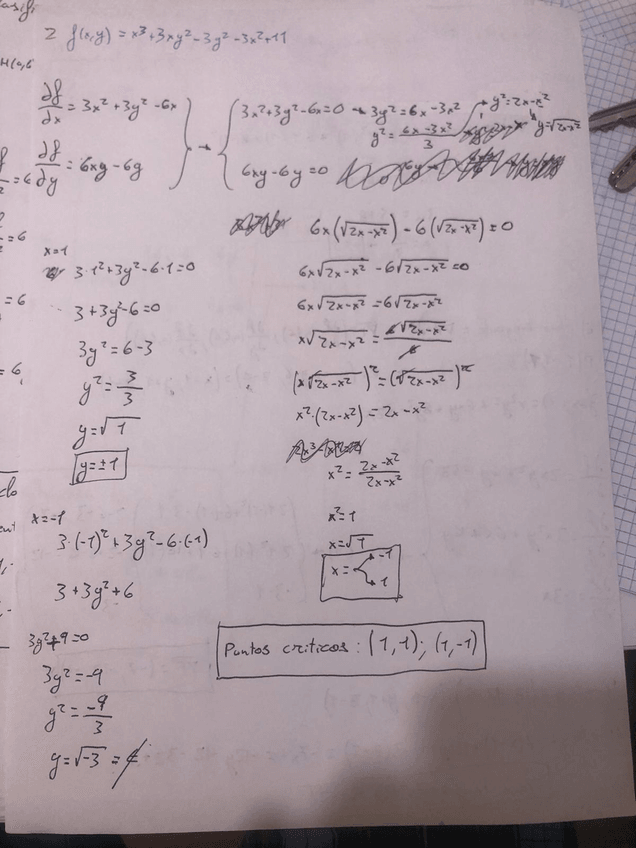 2 f(x,y) = x³+3xy²-3y²-3x²+11
∂f/∂x = 3x²+3y²-6x
∂f/∂y = 6xy-6y
3x²+3y²-6x=0 → 3y²=6x-3x²
y² = (6x-3x²)/3 → y²=2x-x²
y=√2x-x²
6xy-6y=0
6x(√2x-x²) - 6(√2x-x²) = 0
6x√2x-x² - 6√2x-x² = 0
6x√2x-x² = 6√2x-x²
x√2x-x² = 6√2x-x²/6
(x√2x-x²)² = (√2x-x²)²
x²·(2x-x²) = 2x-x²
x² = (2x-x²)/(2x-x²)
x²=1
x=√1
x= -1
1
x=1
3·1²+3y²-6·1=0
3+3y²-6=0
3y²=6-3
y²=3/3
y=√1
y=±1
x=-1
3·(-1)²+3y²-6·(-1)
3+3y²+6
3y²+9=0
3y²=-9
y²=-9/3
y=√-3 =
Puntos criticos: (1,1); (1,-1)
=6
=6
=6
=6,